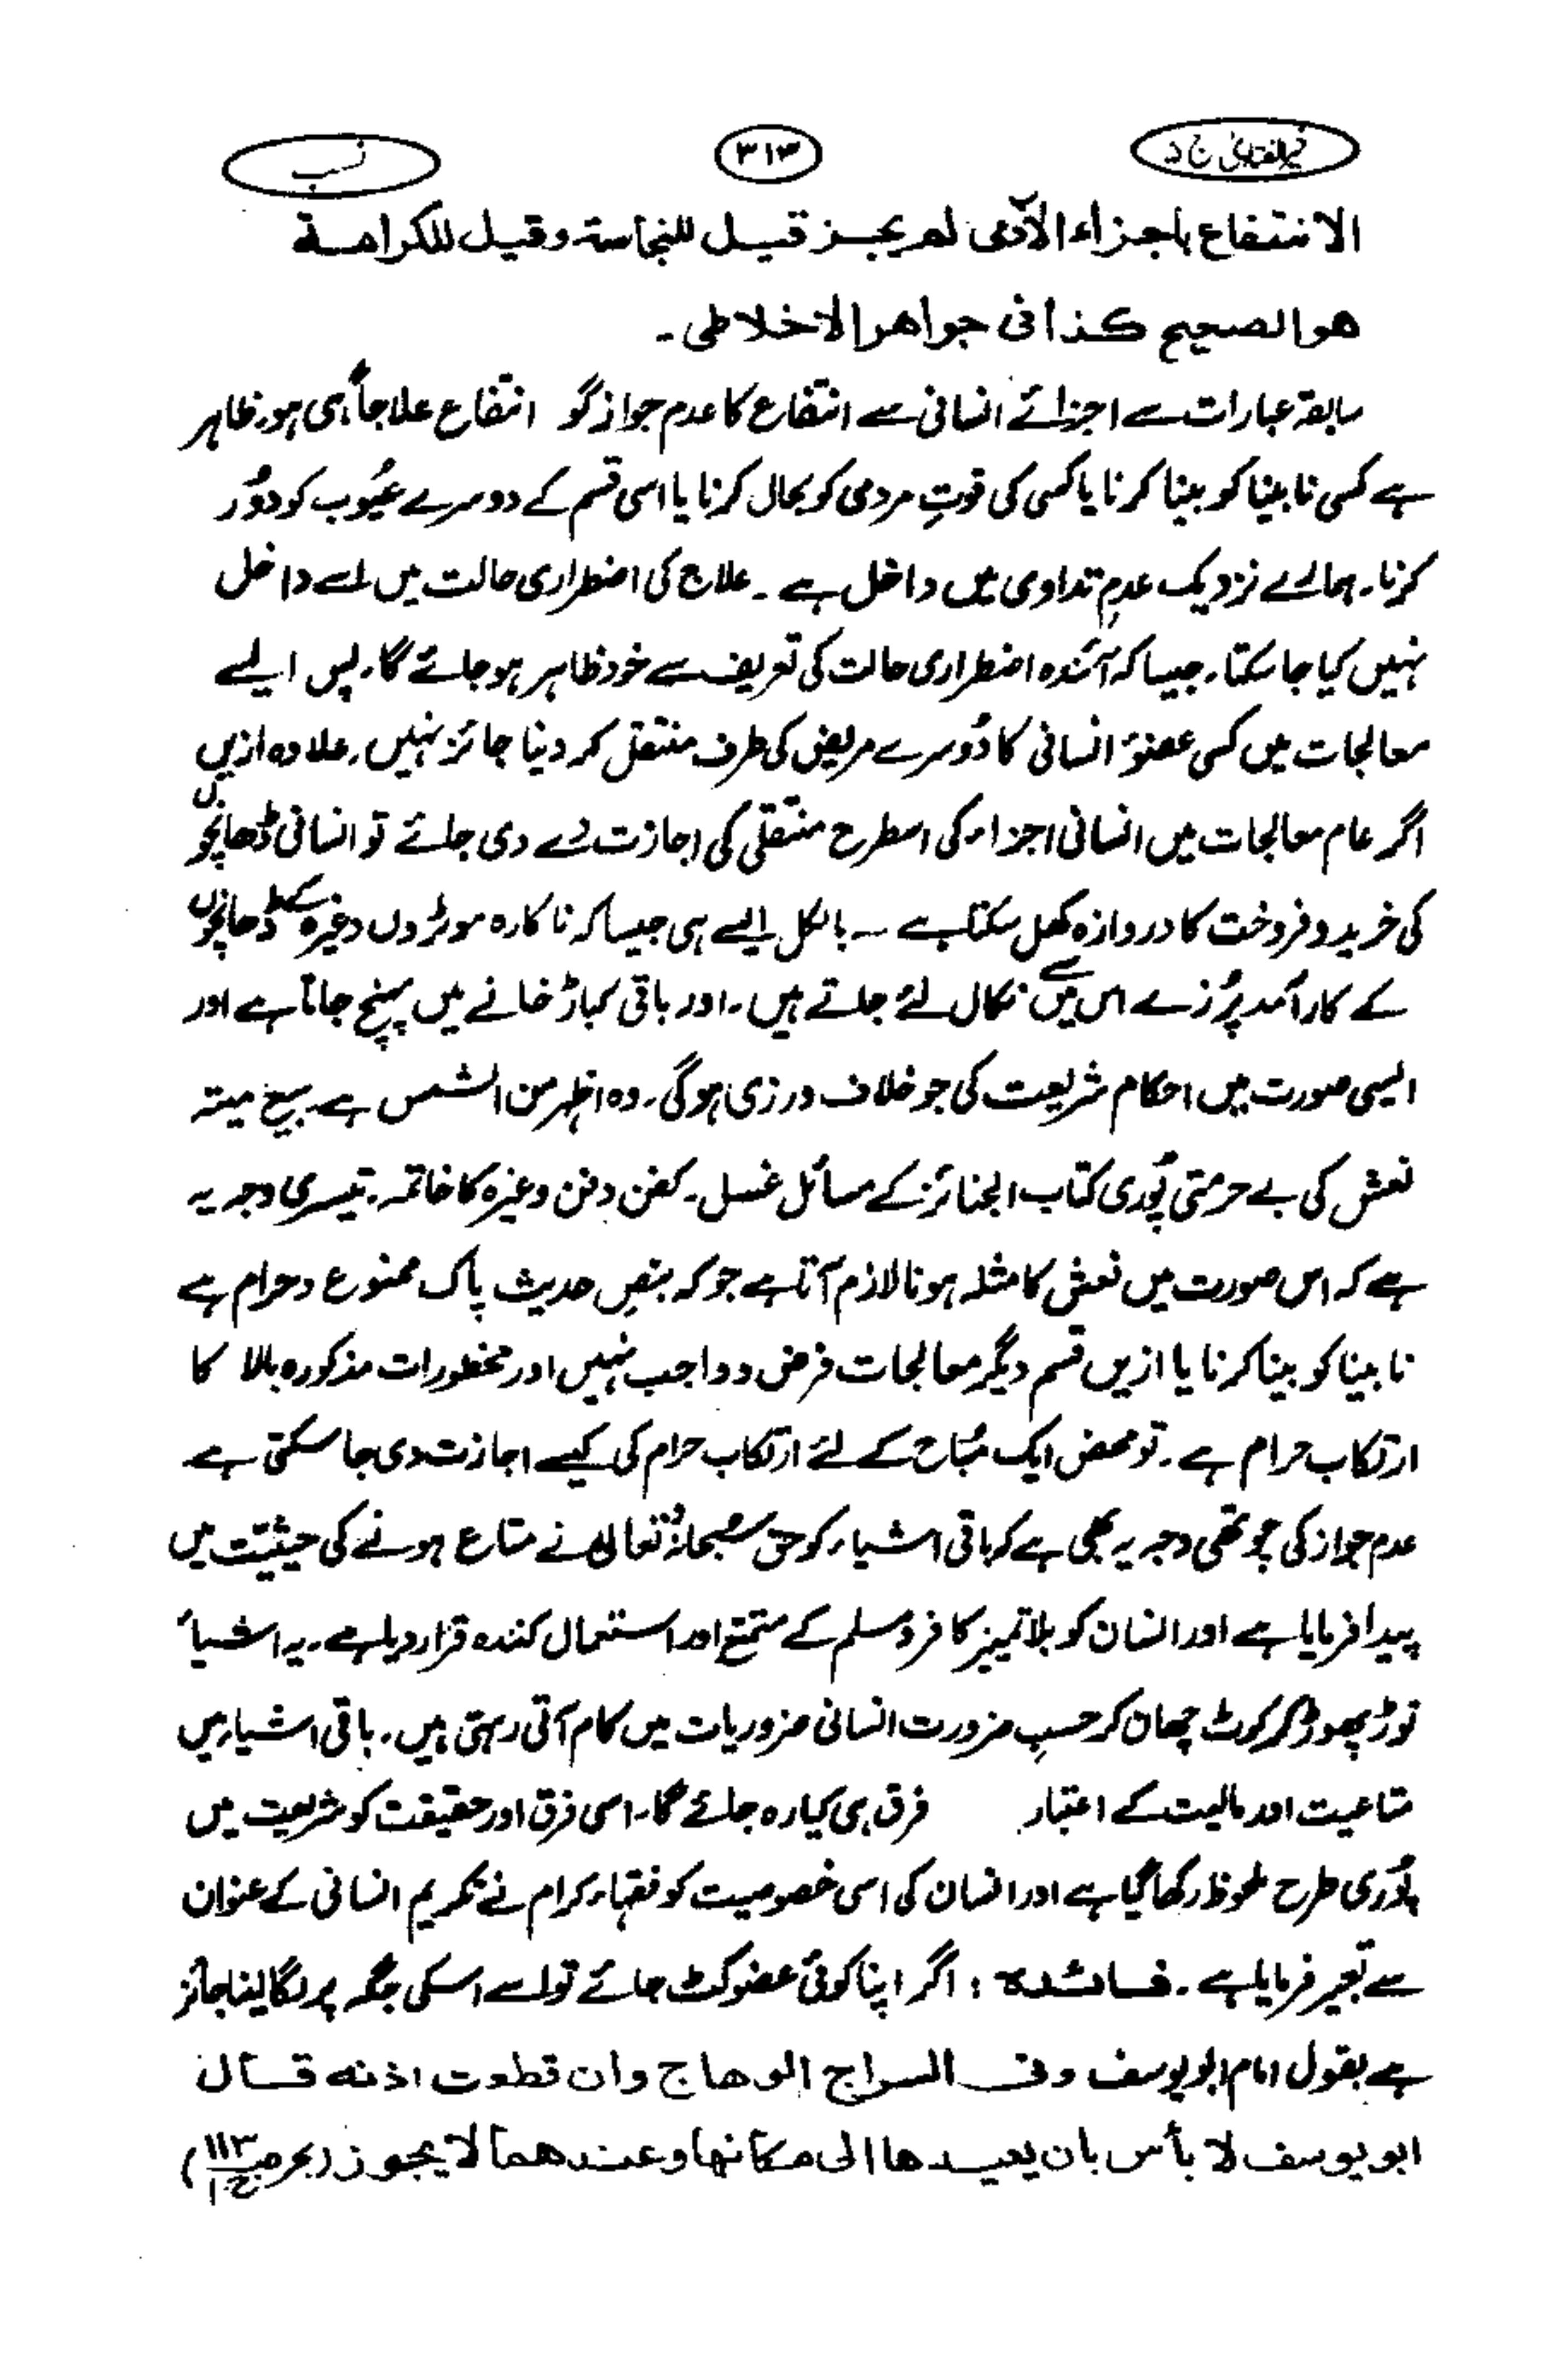 خیر الفتاوی ج ۵ ۳۱۳ نسب
الانتفاع باجزاء الآدمی لم یجز قیل للنجاسة وقیل للکرامة
هو الصحیح کذا فی جواهر الاخلاطی۔
سابقہ عبارات سے اجزائے انسانی سے انتفاع کا عدم جواز گو انتفاع علاجاً ہی ہو۔ ظاہر
ہے کسی نابینا کو بینا کرنا یا کسی کی قوتِ مردمی کو بحال کرنا یا اسی قسم کے دوسرے عیُوب کو دوُر
کرنا۔ ہمارے نزدیک عدمِ تداوی میں داخل ہے۔ علاج کی اضطراری حالت میں اسے داخل
نہیں کیا جا سکتا۔ جیسا کہ آئندہ اضطراری حالت کی تعریف سے خود ظاہر ہو جائے گا۔ پس ایسے
معالجات میں کسی عضوِ انسانی کا دُوسرے مریض کی طرف منتقل کر دینا جائز نہیں۔ علاوہ ازیں
اگر عام معالجات میں انسانی اجزاء کی اسطرح منتقلی کی اجازت دے دی جائے تو انسانی ڈھانچوں
کی خرید و فروخت کا دروازہ کھل سکتا ہے ۔ بالکل ایسے ہی جیسا کہ ناکارہ موٹروں وغیرہ کے ڈھانچوں
کے کار آمد پُرزے اس میں سے نکال لئے جاتے ہیں۔ اور باقی کباڑ خانے میں پہنچ جاتا ہے اور
ایسی صورت میں احکام شریعت کی جو خلاف ورزی ہو گی۔ وہ اظہر من الشمس ہے۔ بیع میتہ
نعش کی بے حرمتی پُوری کتاب الجنائز کے مسائل غسل۔ کفن دفن وغیرہ کا خاتمہ۔ تیسری وجہ یہ
ہے کہ اس صورت میں نعش کا مثلہ ہونا لازم آتا ہے جو کہ بنصِ حدیث پاک ممنوع و حرام ہے
نابینا کو بینا کرنا یا ازیں قسم دیگر معالجات فرض و واجب نہیں اور محظورات مذکورہ بالا کا
ارتکاب حرام ہے۔ تو محض ایک مُباح کے لئے ارتکاب حرام کی کیسے اجازت دی جا سکتی ہے
عدم جواز کی چوتھی وجہ یہ بھی ہے کہ باقی اشیاء کو حق سبحانہٗ تعالیٰ نے متاع ہونے کی حیثیّت میں
پیدا فرمایا ہے اور انسان کو بلا تمیز کافر و مسلم کے متمتع اور استعمال کنندہ قرار دیا ہے۔ یہ اشیاء
توڑ پھوڑ کر کوٹ چھان کر حسبِ ضرورت انسانی ضروریات میں کام آتی رہتی ہیں۔ باقی اشیاء میں
متاعیت اور مالیت کے اعتبار فرق ہی کیا رہ جائے گا۔ اسی فرق اور حقیقت کو شریعت میں
پُوری طرح ملحوظ رکھا گیا ہے اور انسان کی اسی خصوصیت کو فقہاء کرام نے تکریم انسانی کے عنوان
سے تعبیر فرمایا ہے۔ فائدہ : اگر اپنا کوئی عضو کٹ جائے تو اسے اسکی جگہ پر لگا لینا جائز
ہے بقول امام ابو یوسف وفی السراج الوهاج وان قطعت اذنه قال
ابو یوسف لا بأس بان یعیدها الی مکانها وعندهما لا یجوز (بحر ص۱۱۳ ج۱)